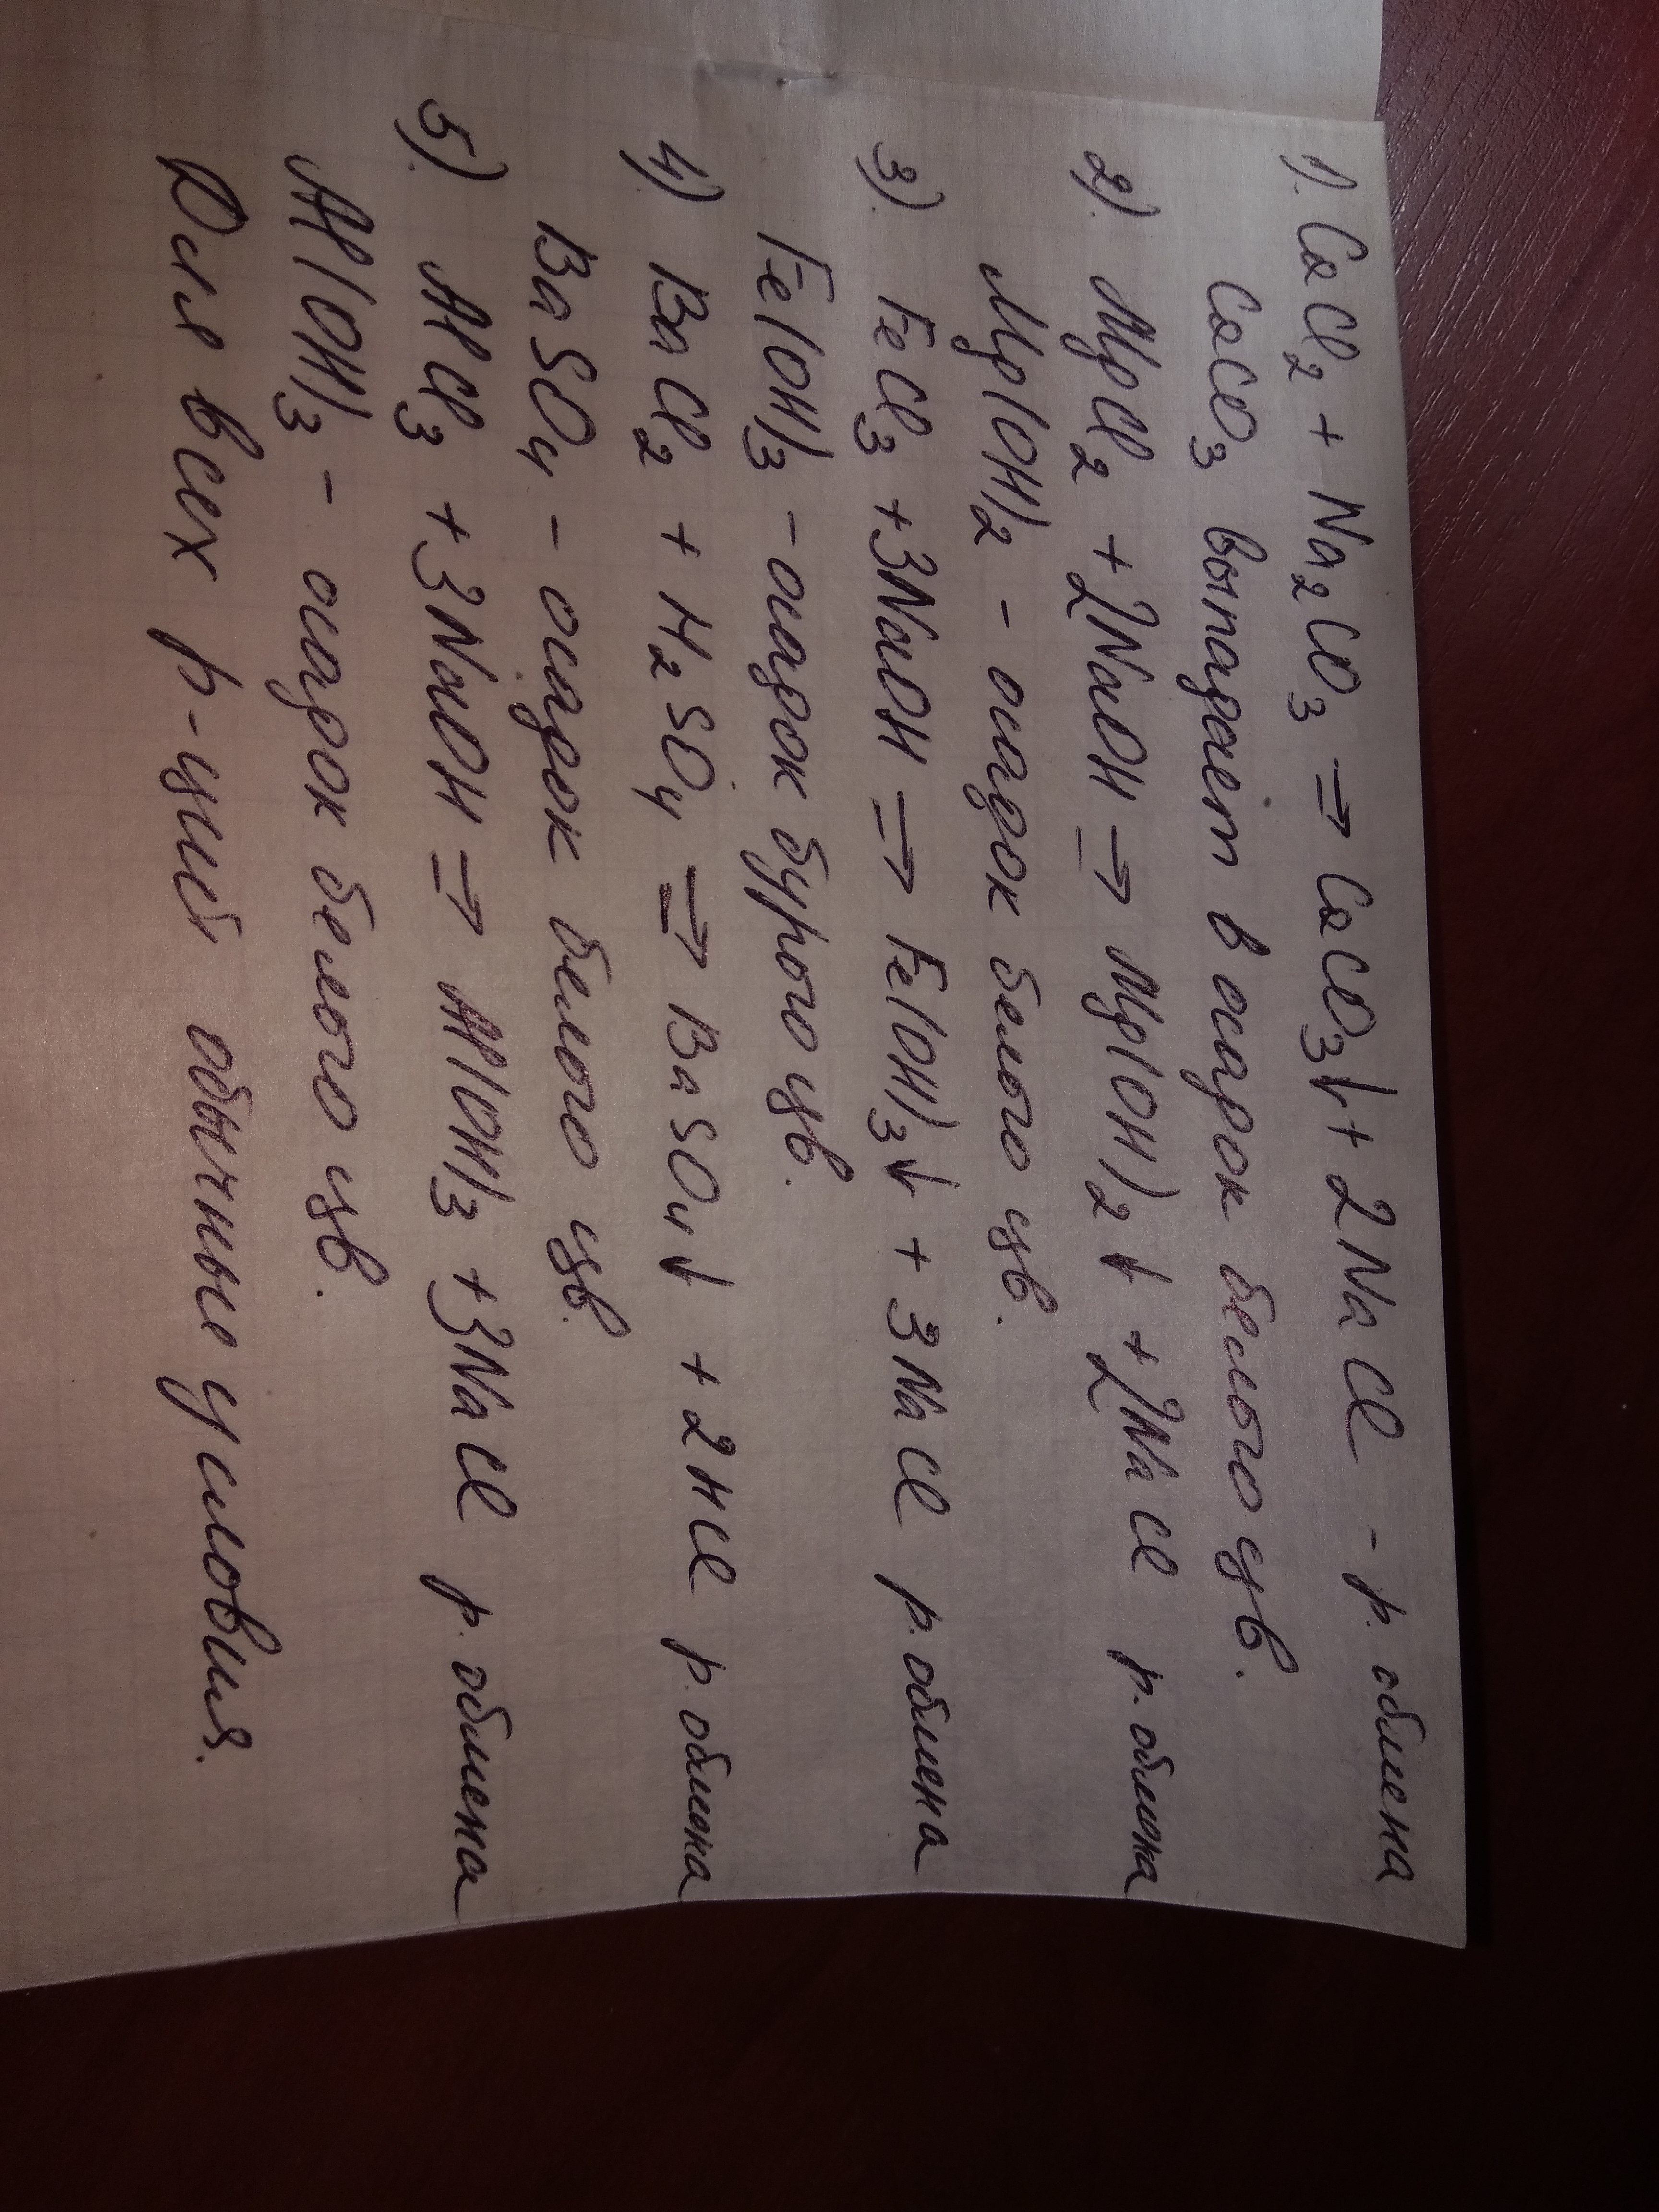 1). CaCl₂ + Na₂CO₃ ⇒ CaCO₃↓ + 2NaCl - р. обмена
CaCO₃ выпадает в осадок белого цв.
2). MgCl₂ + 2NaOH ⇒ Mg(OH)₂↓ + 2NaCl р. обмена
Mg(OH)₂ - осадок белого цв.
3). FeCl₃ + 3NaOH ⇒ Fe(OH)₃↓ + 3NaCl р. обмена
Fe(OH)₃ - осадок бурого цв.
4) BaCl₂ + H₂SO₄ ⇒ BaSO₄↓ + 2HCl р. обмена
BaSO₄ - осадок белого цв.
5) AlCl₃ + 3NaOH ⇒ Al(OH)₃ + 3NaCl р. обмена
Al(OH)₃ - осадок белого цв.
Для всех р-ций обычные условия.